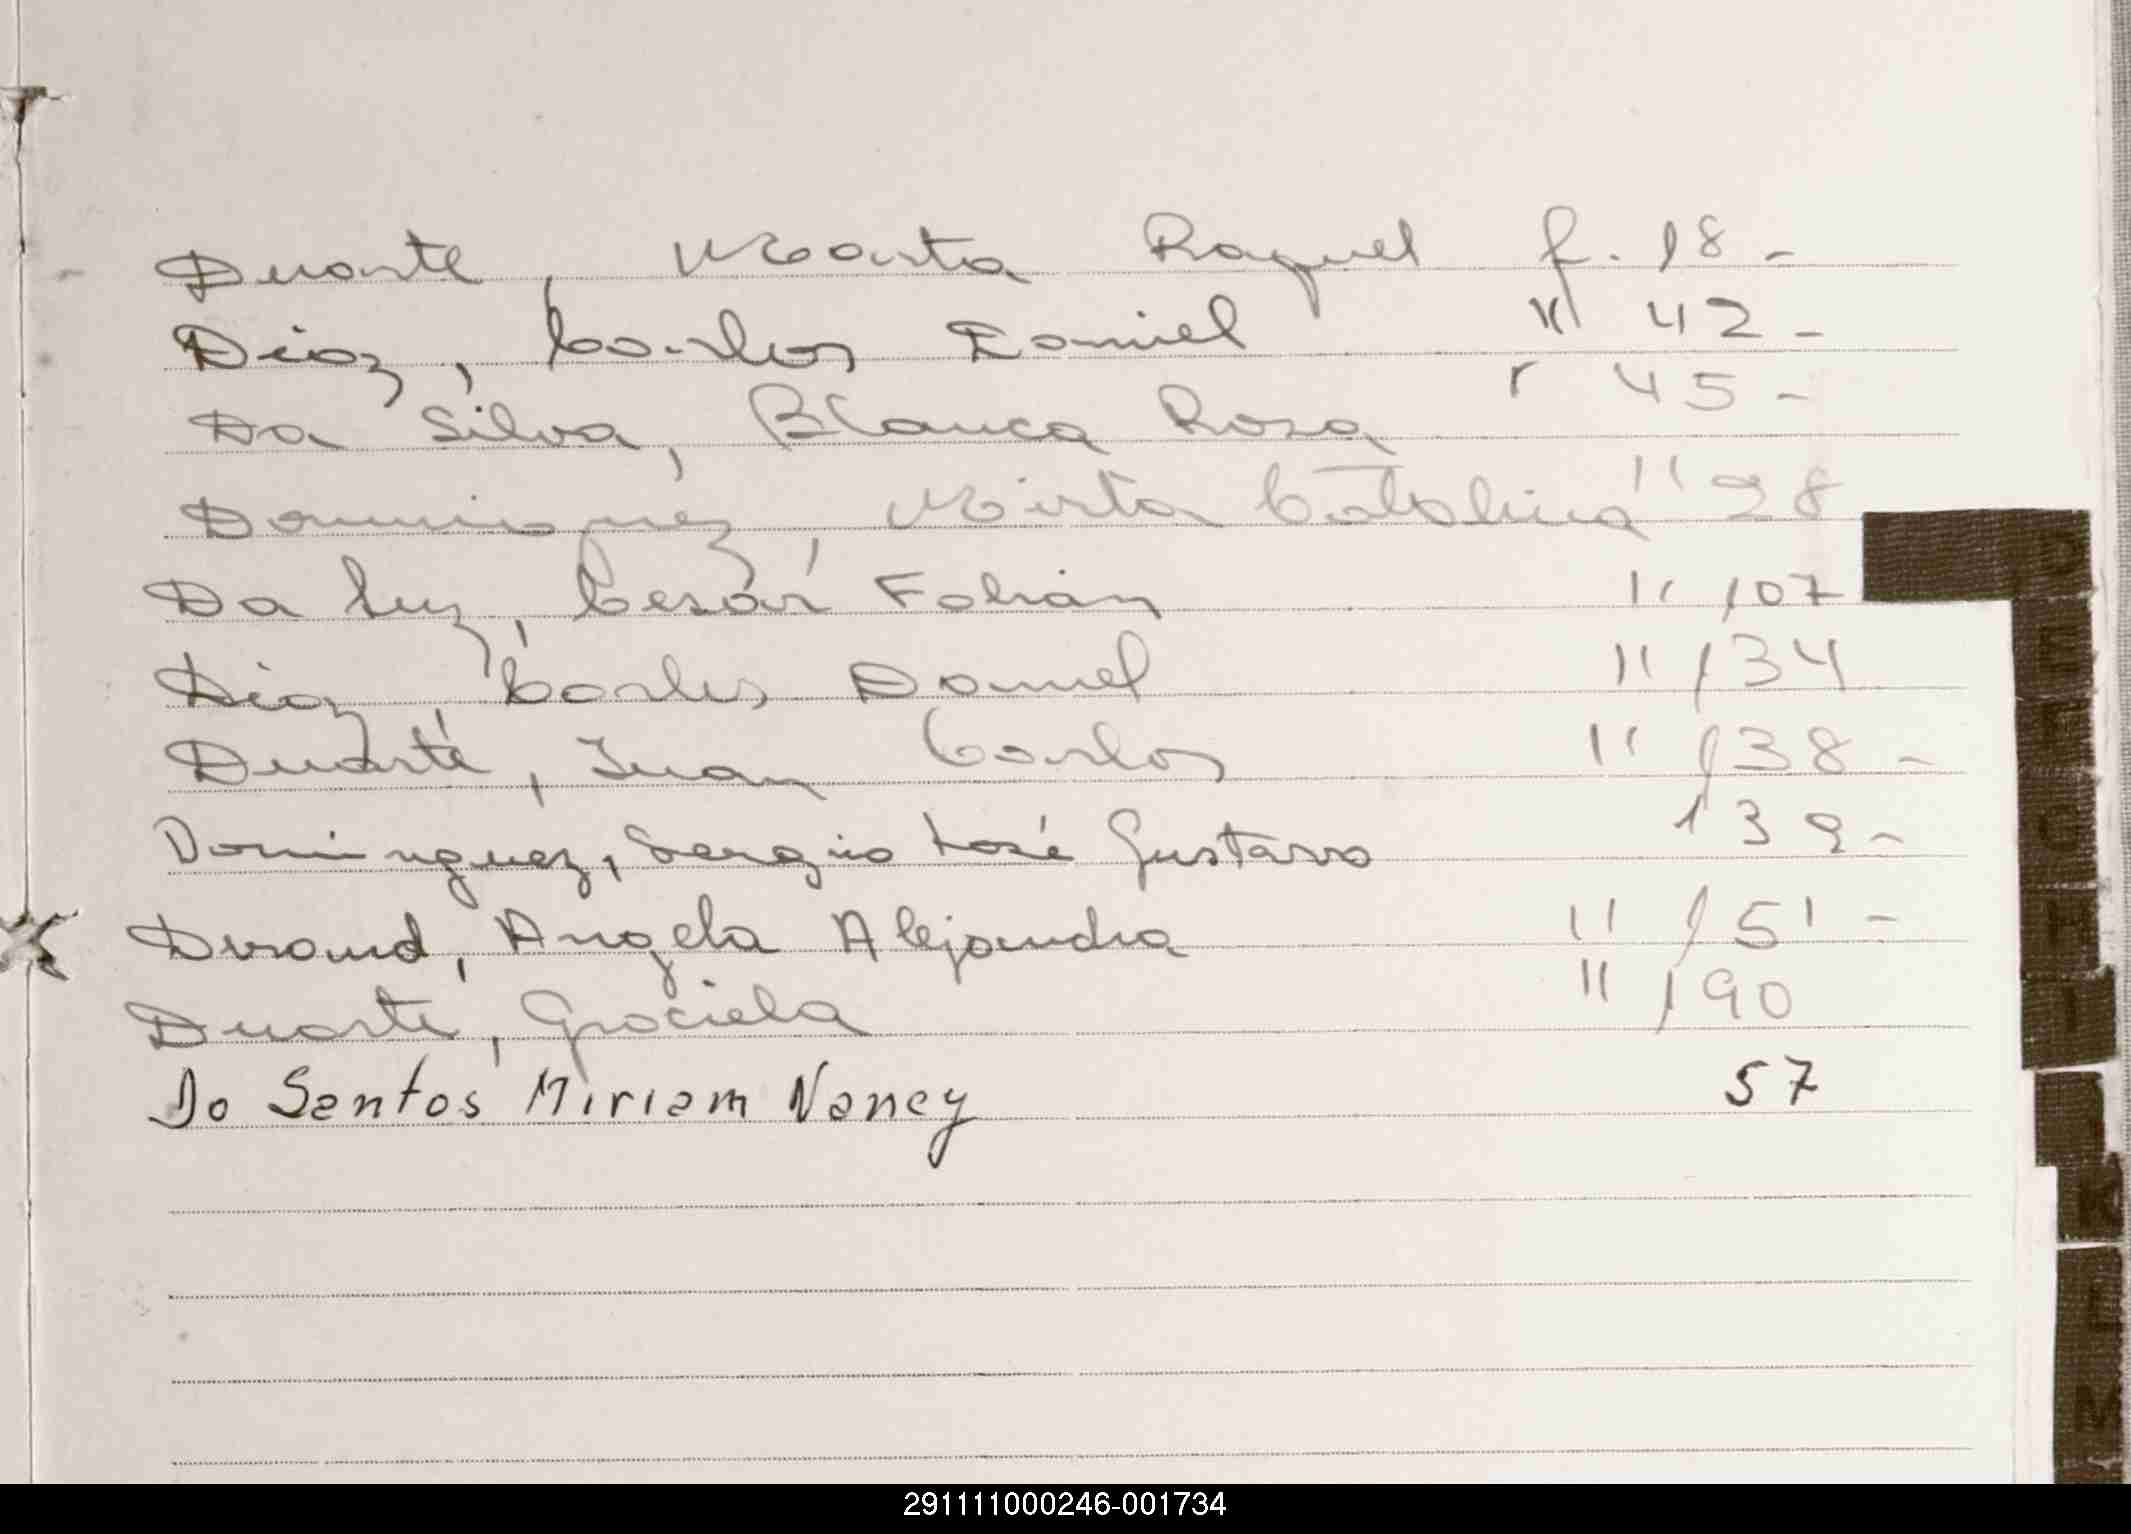 Duarte, Marta Raquel f. 18 -
Diaz, Carlos Daniel " 42 -
Da Silva, Blanca Rosa " 45 -
Dominguez, Mirta Catalina " 98
Da Luz, Cesár Fabian " 107
Diaz Carlos Daniel " 134
Duarte, Juan Carlos " 138 -
Dominguez, Sergio José Gustavo 139 -
Durand, Angela Alejandra " 151 -
Duarte, Graciela " 190
Do Santos Miriam Nancy 57
D
E
F
G
H
I
K
L
M
291111000246-001734